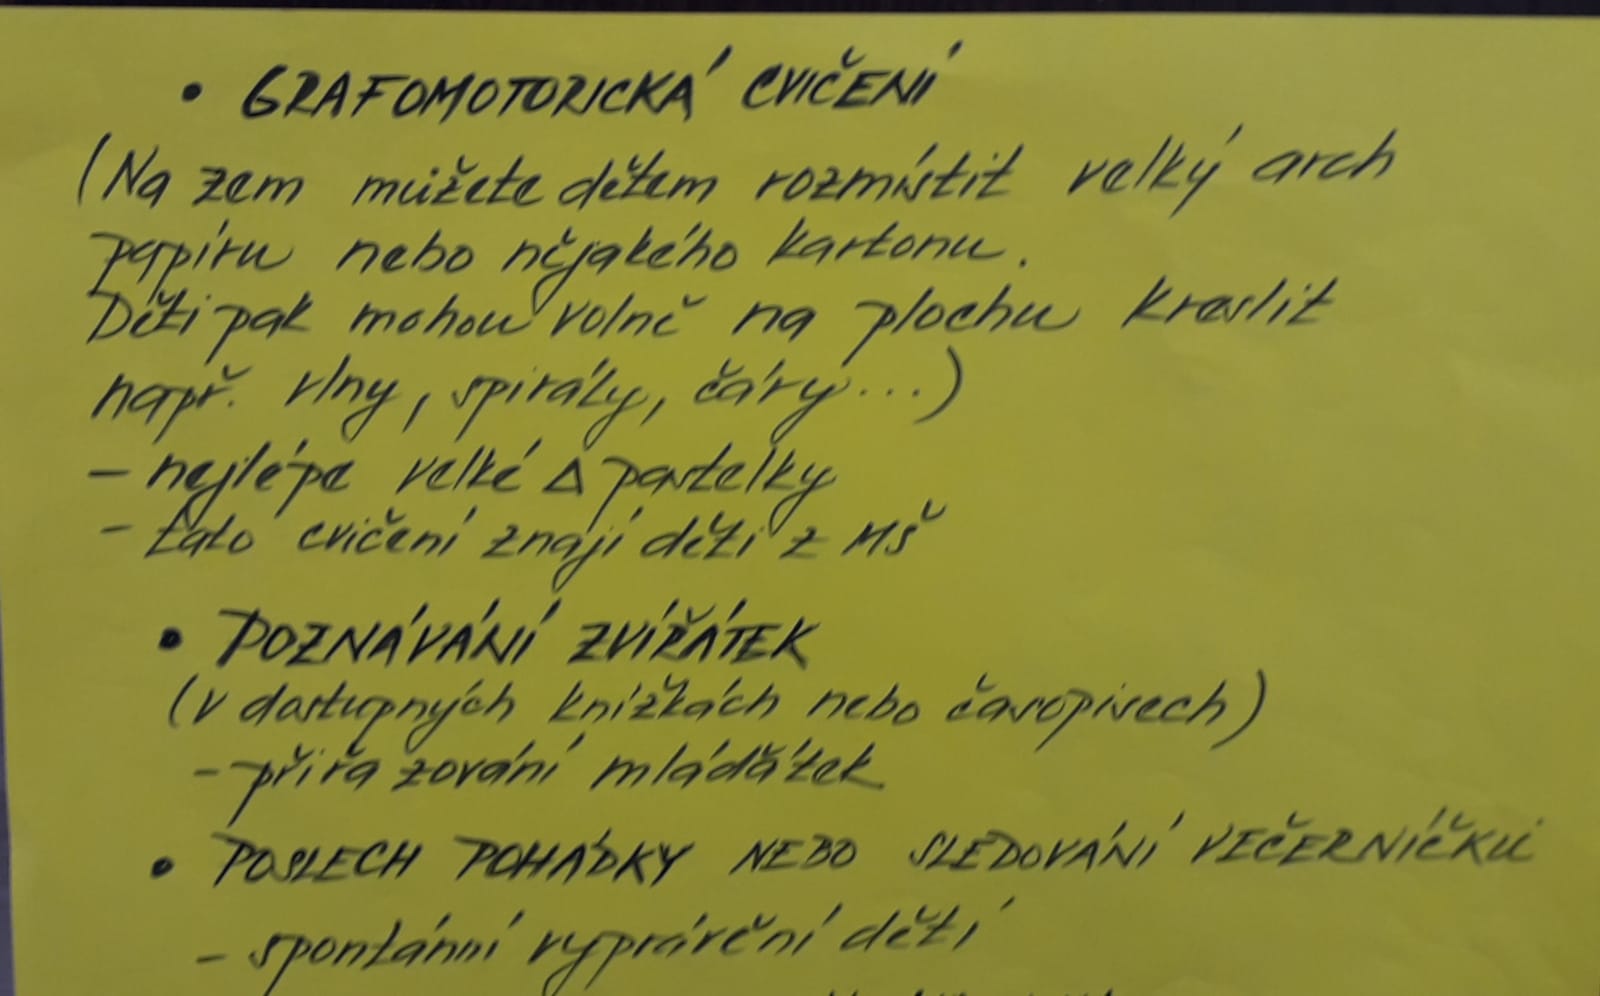 • GRAFOMOTORICKÁ CVIČENÍ
(Na zem můžete dětem rozmístit velký arch
papíru nebo nějakého kartonu.
Děti pak mohou volně na plochu kreslit
např. vlny, spirály, čáry...)
- nejlépe velké △ pastelky
- tato cvičení znají děti z MŠ
• POZNÁVÁNÍ ZVÍŘÁTEK
(v dostupných knížkách nebo časopisech)
- přiřazování mláďátek
• POSLECH POHÁDKY NEBO SLEDOVÁNÍ VEČERNÍČKŮ
- spontánní vyprávění dětí